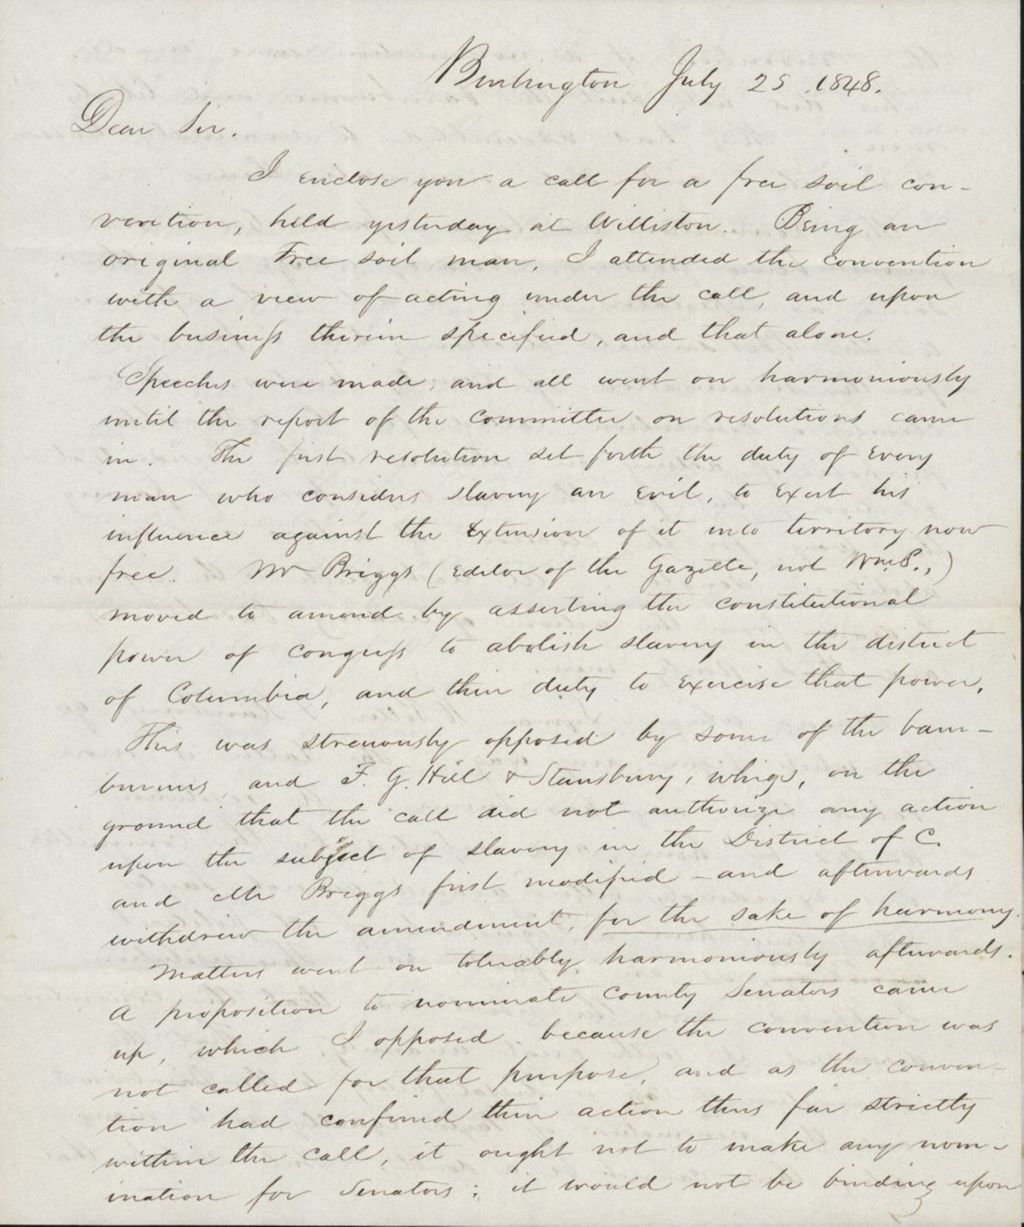 Burlington July 25, 1848.
Dear Sir.
I enclose you a call for a free soil con-
vention, held yesterday at Williston. Being an
original Free soil man, I attended the convention
with a view of acting under the call, and upon
the business therein specified, and that alone.
Speeches were made, and all went on harmoniously
until the report of the committee on resolutions came
in. The first resolution set forth the duty of every
man who considers slavery an evil, to exert his
influence against the extension of it into territory now
free. Mr Briggs (editor of the Gazette, not Wm P.,)
moved to amend by asserting the constitutional
power of congress to abolish slavery in the district
of Columbia, and their duty to exercise that power.
This was strenuously opposed by some of the barn-
burners, and F. G. Hill & Stansbury, whigs, on the
ground that the call did not authorize any action
upon the subject of slavery in the District of C.
and Mr Briggs first modified - and afterwards
withdrew the amendment, for the sake of harmony.
Matters went on tolerably harmoniously afterwards.
A proposition to nominate county Senators came
up, which I opposed because the convention was
not called for that purpose, and as the conven-
tion had confined their action thus far strictly
within the call, it ought not to make any nom-
ination for Senators; it would not be binding upon